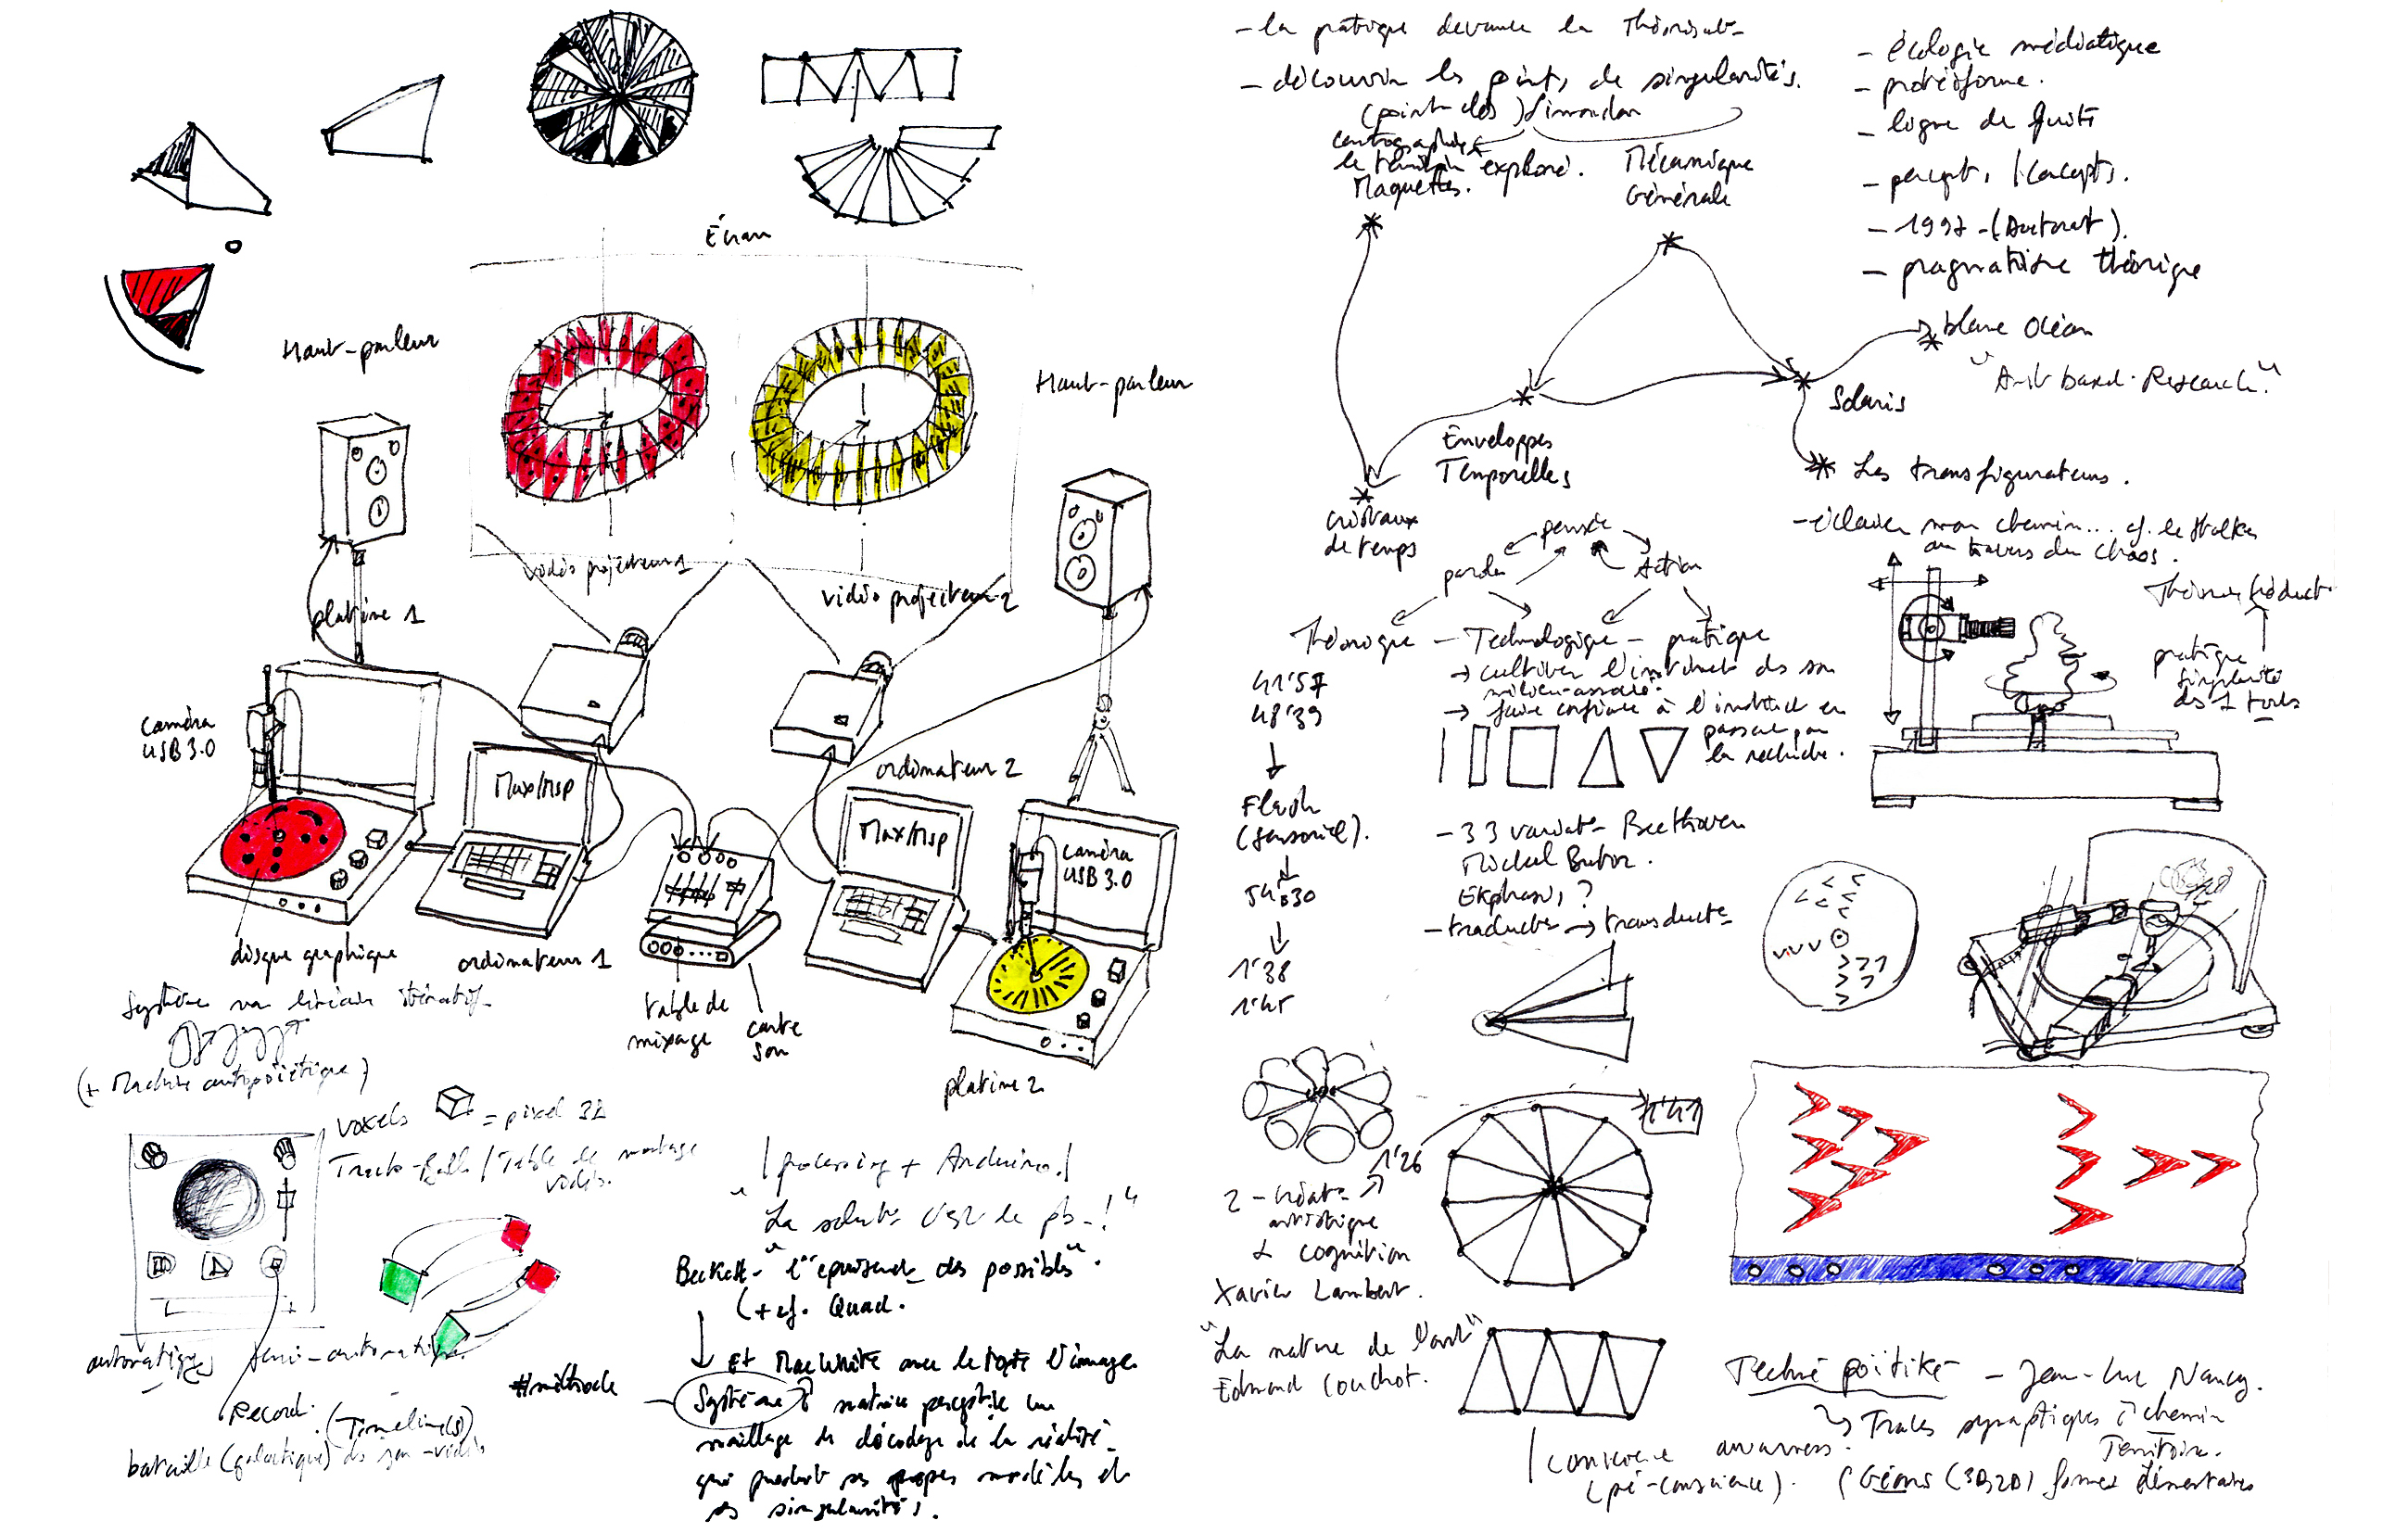 Écran
Haut-parleur
Haut-parleur
vidéo projecteur 1
vidéo projecteur 2
platine 1
caméra
USB 3.0
Max/Msp
ordinateur 2
Max/Msp
caméra
USB 3.0
disque graphique
ordinateur 1
table de
mixage
carte
son
platine 2
Système non linéaire itératif
(+ Machine autopoïétique)
voxels = pixel 3D
Track-Ball / Table de montage
vidéo.
automatique semi-automatique
Record.
(Timeline(s))
bataille (galactique) de jeu-vidéo
| processing + Arduino. |
"La solut° c'est le pb-!"
Beckett - "l'épuisement des possibles".
(+ cf. Quad.
Et Machinité avec le texte l'image
#méthode
Système matrice perceptible un
maillage de décodage de la réalité
qui produit ses propres modèles et
ses singularités.
- la pratique devance la théorisat°
- découvrir les points de singularités.
(point clés) Simondon
cartographier
le terrain exploré.
Maquettes.
Mécanique
Générale
- écologie médiatique
- protéiforme.
- ligne de fuite
- percepts / Concepts.
- 1997 - (Doctorat).
- pragmatisme théorique
blanc Océan
"Art-based-Research."
Solaris
Enveloppes
Temporelles
Les transfigurateurs.
cristaux
de temps
- éclairer mon chemin... cf. le Stalker
au travers du chaos.
pensée
parole
Action
Théorique - Technologique - pratique
→ cultiver l'instinct de son
milieu-associé.
→ faire confiance à l'instinct en
passant par
la recherche.
41'57
48'39
Flush
(sensoriel).
54'30
1'38
1'45
pratique
singularité
- 33 variat° Beethoven
Michel Butor.
Ekphrasis ?
- traduct° → transduct°
1'26
1'41
2 - créat°
artistique
& cognition
Xavier Lambert.
"La nature de l'art"
Edmond Couchot.
Techné poïétiké - Jean-Luc Nancy.
Traces synaptiques chemin
Territoire.
conscience awarness.
(pré-conscience).
(Géons (3D, 2D) formes élémentaires